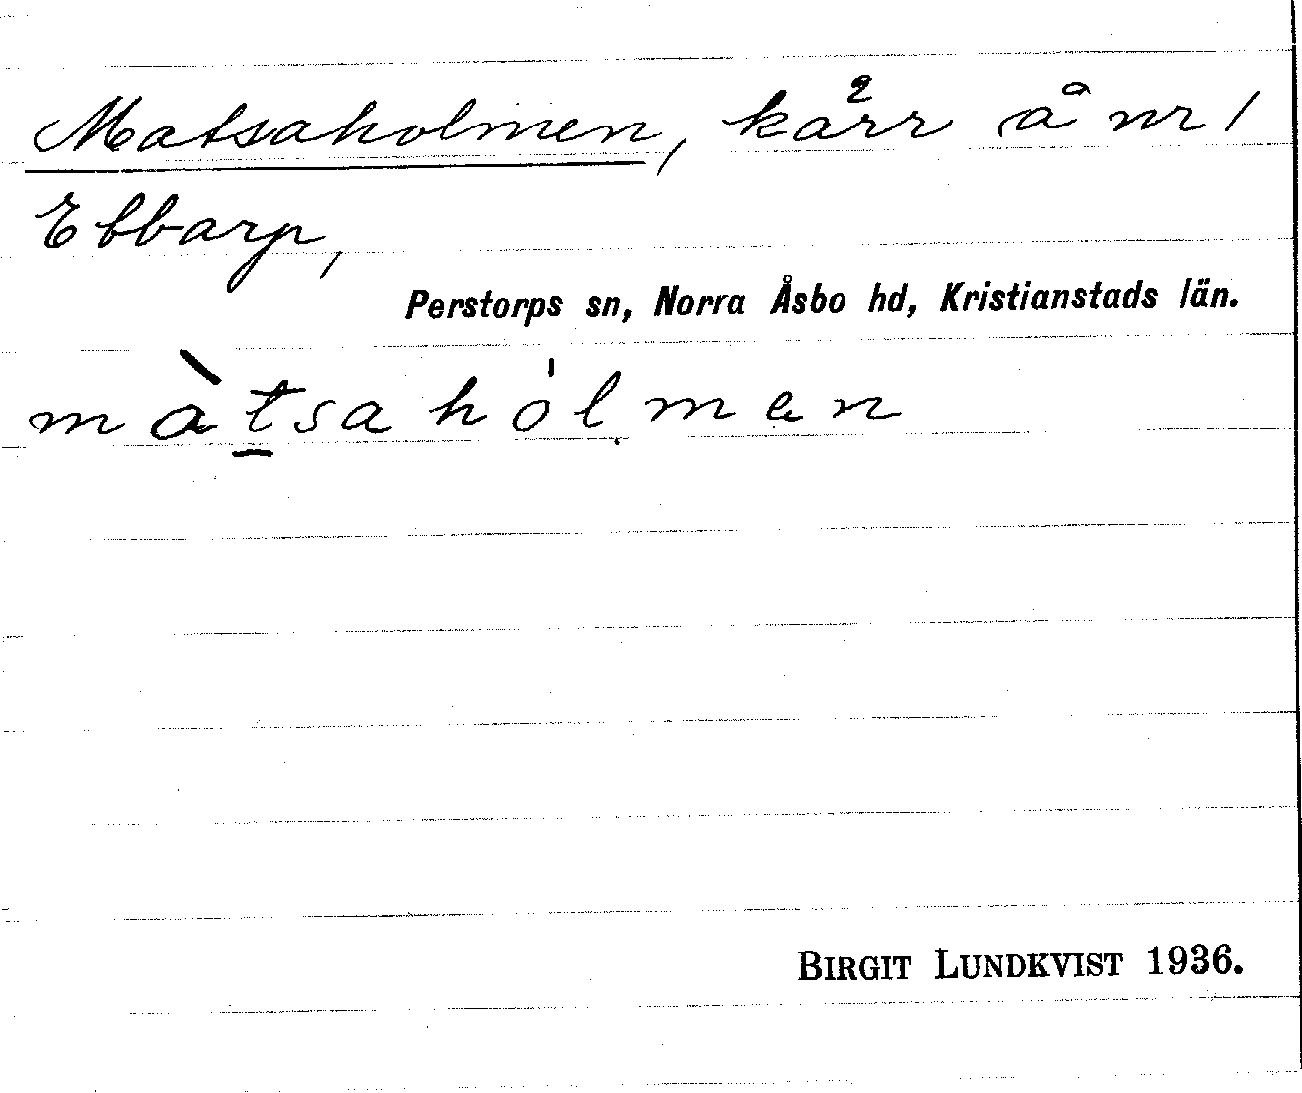 Matsaholmen, kärr å nr 1
Ebbarp,
Perstorps sn, Norra Åsbo hd, Kristianstads län.
màt̲sahólmen
BIRGIT LUNDKVIST 1936.